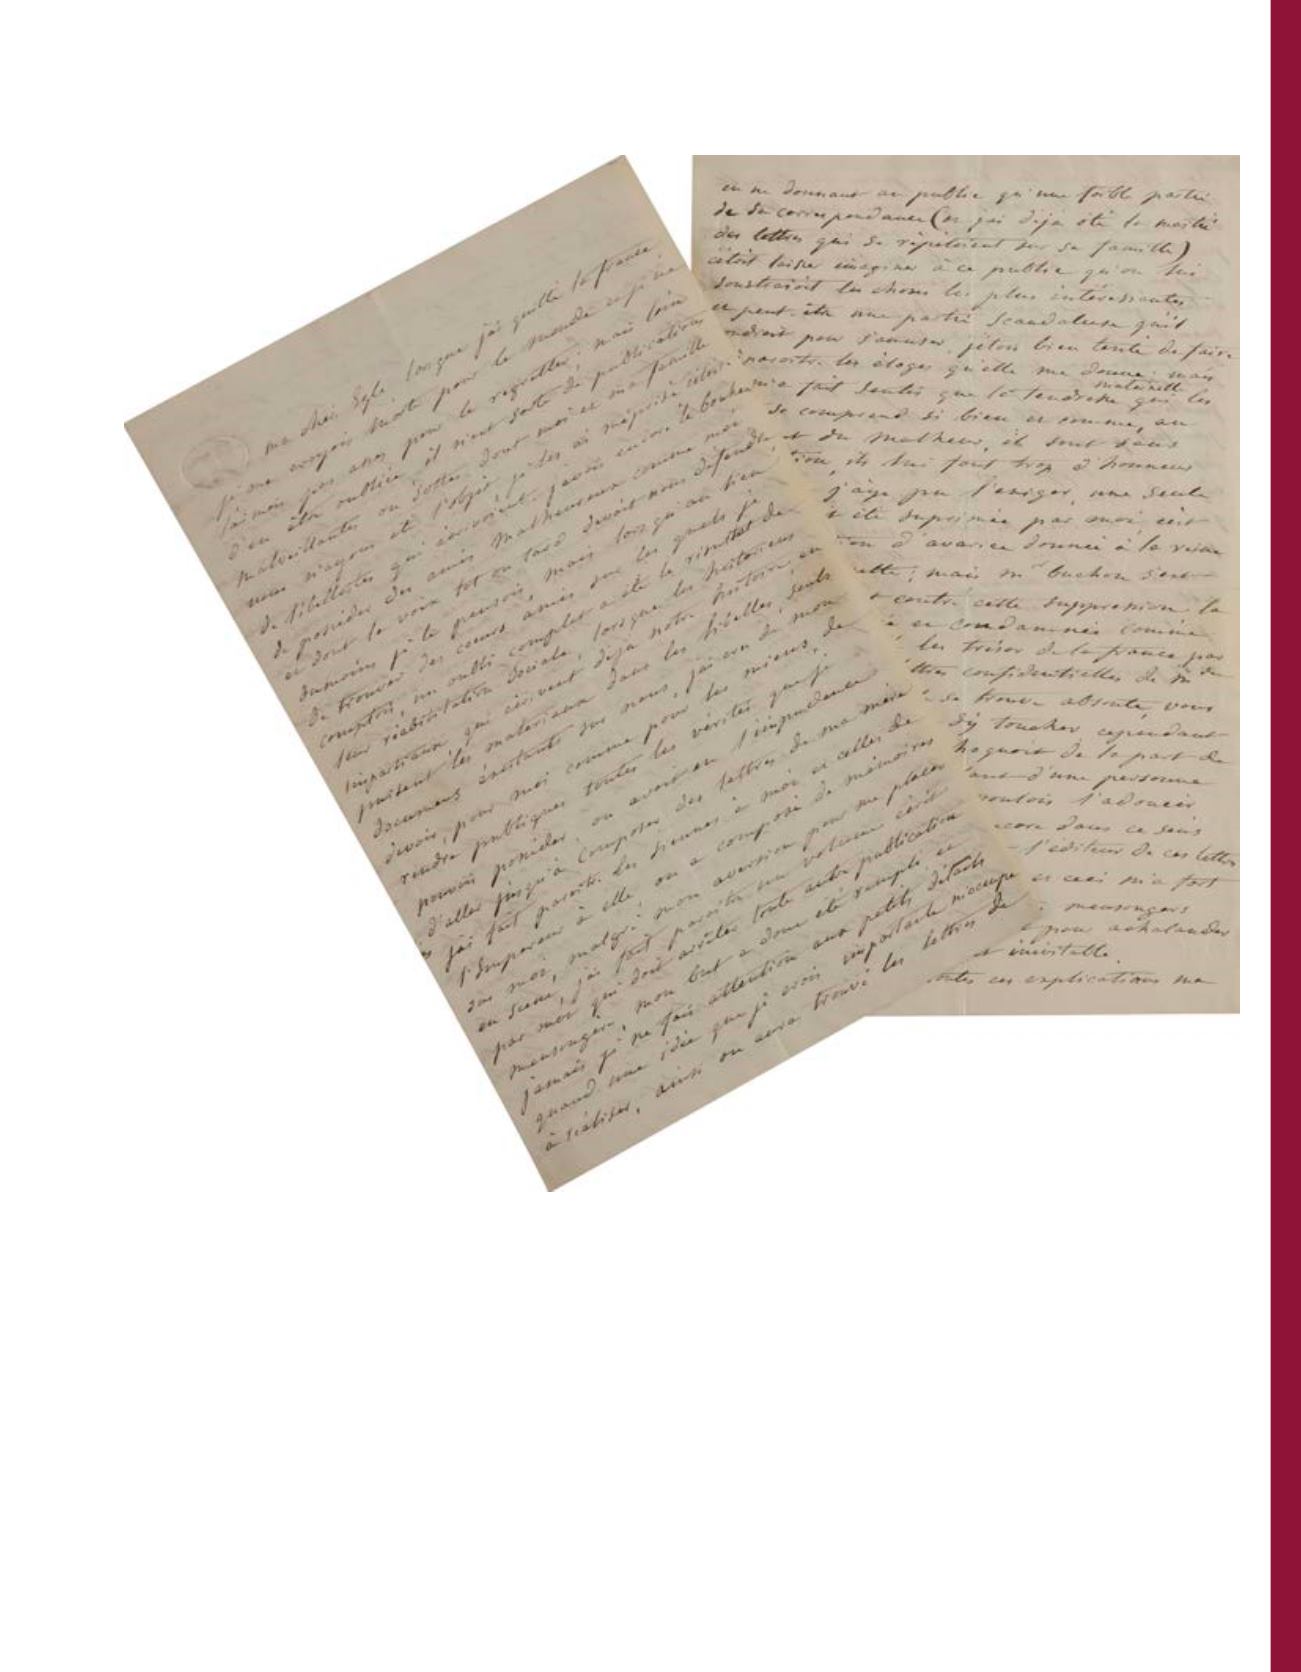 ma chère Eglé lorsque j'ai quitté la france
je me croyois morte pour le monde et je ne
l'ai mois pas assez pour le regretter; mais loin
d'en être oubliée il n'est sorte de publications
malveillantes ou sottes dont moi et ma famille
nous n'ayons été l'objet je les ai méprisé
de libellistes qui écrivoient j'avois encore le bonheur
de posséder des amis malheureux comme moi
et dont la voix tot ou tard devoit nous défendre
dumoins je le pensois, mais lorsqu'au lieu
de trouver des cœurs amis sur les quels je
comptois, un oubli complet a été le résultat de
leur réabilitation sociale, lorsque les historiens
impartiaux qui écrivent déja notre histoire, en
puisent les materiaux dans les libelles, seuls
documens existants sur nous, j'ai cru de mon
devoir, pour moi comme pour les miens, de
rendre publiques toutes les vérités que je
pouvois posséder on avoit eu l'impudence
d'aller jusqu'à composer des lettres de ma mère
j'ai fait paroitre les siennes à moi et celles de
l'Empereur à elle on a composé de mémoires
sur moi, malgré mon aversion pour me placer
en scene, j'ai fait paroitre un volume écrit
par moi qui doit arrêter toute autre publication
mensongère, mon but a donc été rempli et
jamais je ne fais attention aux petits détails
quand une idée que je crois importante m'occupe
à réaliser, ainsi on aura trouvé les lettres de
en ne donnant au public qu'une foible partie
de sa correspondance (et j'ai déja oté la moitié
des lettres qui se répétoient sur sa famille)
c'étoit laisser imaginer à ce public qu'on lui
soustraioit les choses les plus intéressantes
et peut-être une partie scandaleuse qu'il
pour s'amuser, j'étois bien tentée de faire
les éloges qu'elle me donne: mais
m'a fait sentir que la tendresse maternelle qui les
se comprend si bien et comme, au
du malheur, il sont sans
ils lui font trop d'honneur
j'aye pu l'exiger, une seule
été suprimée par moi c'est
d'avarice donnée à la reine
mais mr buchon s'est
contre cette suppression la
en condamnée comme
les trésor de la france par
confidentielles de Mde
se trouve absente, vous
toucher, cependant
de la part de
d'une personne
voulois l'adoucir
dans ce sens
l'editeur de ces lettres
et ceci m'a fort
mensongers
pour achalander
inévitable.
ces explications ma